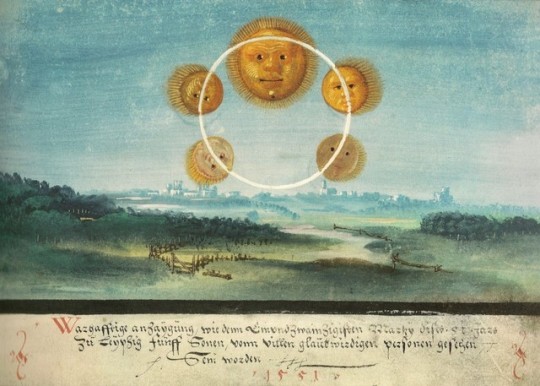 Warhafftige anzaygung wie dem Einundzwanzigisten Marty dises 51 Jars
Zu Leyptzig fünff Sonen, vonn vilen glaubwirdigen personen gesehen
Seni worden
1551